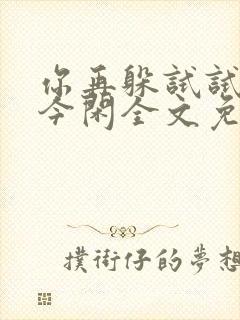 你再躲试试
今闲全文免
撲街仔的夢想